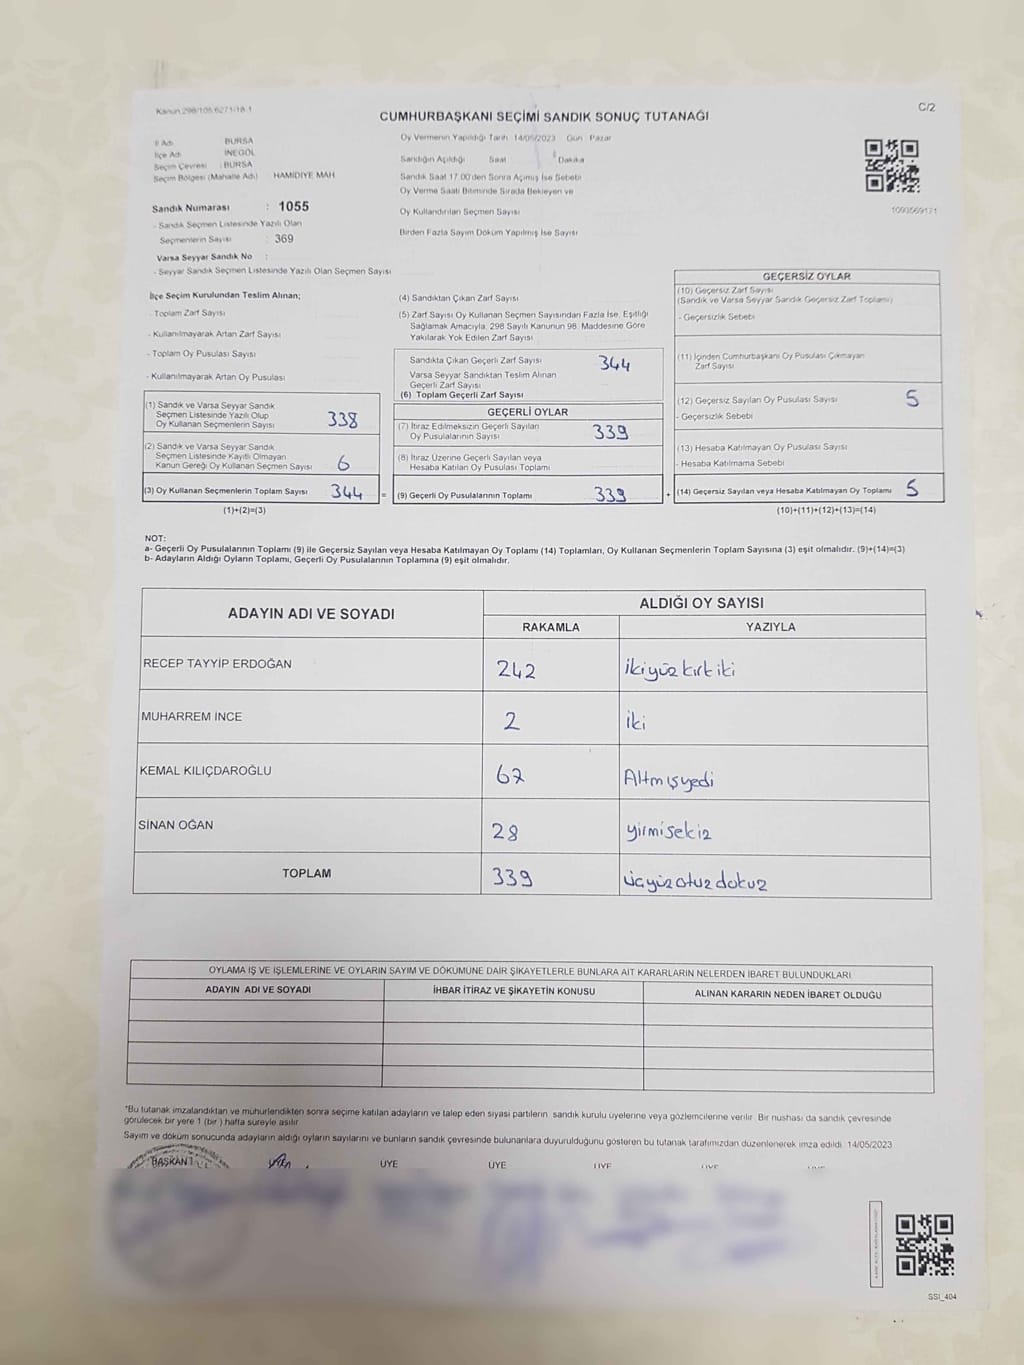 Kanun 298/105 6271/18-1
C/2
CUMHURBAŞKANI SEÇİMİ SANDIK SONUÇ TUTANAĞI
İl Adı BURSA
İlçe Adı İNEGÖL
Seçim Çevresi : BURSA
Seçim Bölgesi (Mahalle Adı) HAMİDİYE MAH
Sandık Numarası : 1055
- Sandık Seçmen Listesinde Yazılı Olan
Seçmenlerin Sayısı : 369
Varsa Seyyar Sandık No :
- Seyyar Sandık Seçmen Listesinde Yazılı Olan Seçmen Sayısı
Oy Vermenin Yapıldığı Tarih 14/05/2023 Gün Pazar
Sandığın Açıldığı Saat Dakika
Sandık Saat 17.00'den Sonra Açılmış İse Sebebi
Oy Verme Saati Bitiminde Sırada Bekleyen ve
Oy Kullandırılan Seçmen Sayısı
Birden Fazla Sayım Döküm Yapılmış İse Sayısı
1093569171
İlçe Seçim Kurulundan Teslim Alınan;
- Toplam Zarf Sayısı
- Kullanılmayarak Artan Zarf Sayısı
- Toplam Oy Pusulası Sayısı
- Kullanılmayarak Artan Oy Pusulası
(1) Sandık ve Varsa Seyyar Sandık
Seçmen Listesinde Yazılı Olup
Oy Kullanan Seçmenlerin Sayısı 338
(2) Sandık ve Varsa Seyyar Sandık
Seçmen Listesinde Kayıtlı Olmayan
Kanun Gereği Oy Kullanan Seçmen Sayısı 6
(3) Oy Kullanan Seçmenlerin Toplam Sayısı 344
(1)+(2)=(3)
(4) Sandıktan Çıkan Zarf Sayısı
(5) Zarf Sayısı Oy Kullanan Seçmen Sayısından Fazla İse, Eşitliği
Sağlamak Amacıyla, 298 Sayılı Kanunun 98. Maddesine Göre
Yakılarak Yok Edilen Zarf Sayısı
Sandıkta Çıkan Geçerli Zarf Sayısı 344
Varsa Seyyar Sandıktan Teslim Alınan
Geçerli Zarf Sayısı
(6) Toplam Geçerli Zarf Sayısı
GEÇERLİ OYLAR
(7) İtiraz Edilmeksizin Geçerli Sayılan
Oy Pusulalarının Sayısı 339
(8) İtiraz Üzerine Geçerli Sayılan veya
Hesaba Katılan Oy Pusulası Toplamı
= (9) Geçerli Oy Pusulalarının Toplamı 339
GEÇERSİZ OYLAR
(10) Geçersiz Zarf Sayısı
(Sandık ve Varsa Seyyar Sandık Geçersiz Zarf Toplamı)
- Geçersizlik Sebebi
(11) İçinden Cumhurbaşkanı Oy Pusulası Çıkmayan
Zarf Sayısı
(12) Geçersiz Sayılan Oy Pusulası Sayısı 5
- Geçersizlik Sebebi
(13) Hesaba Katılmayan Oy Pusulası Sayısı
- Hesaba Katılmama Sebebi
+ (14) Geçersiz Sayılan veya Hesaba Katılmayan Oy Toplamı 5
(10)+(11)+(12)+(13)=(14)
NOT:
a- Geçerli Oy Pusulalarının Toplamı (9) ile Geçersiz Sayılan veya Hesaba Katılmayan Oy Toplamı (14) Toplamları, Oy Kullanan Seçmenlerin Toplam Sayısına (3) eşit olmalıdır. (9)+(14)=(3)
b- Adayların Aldığı Oyların Toplamı, Geçerli Oy Pusulalarının Toplamına (9) eşit olmalıdır.
ADAYIN ADI VE SOYADI
ALDIĞI OY SAYISI
RAKAMLA YAZIYLA
RECEP TAYYİP ERDOĞAN 242 ikiyüzkırkiki
MUHARREM İNCE 2 iki
KEMAL KILIÇDAROĞLU 67 Altmışyedi
SİNAN OĞAN 28 yirmisekiz
TOPLAM 339 üçyüzotuzdokuz
OYLAMA İŞ VE İŞLEMLERİNE VE OYLARIN SAYIM VE DÖKÜMÜNE DAİR ŞİKAYETLERLE BUNLARA AİT KARARLARIN NELERDEN İBARET BULUNDUKLARI
ADAYIN ADI VE SOYADI İHBAR İTİRAZ VE ŞİKAYETİN KONUSU ALINAN KARARIN NEDEN İBARET OLDUĞU
*Bu tutanak imzalandıktan ve mühürlendikten sonra seçime katılan adayların ve talep eden siyasi partilerin sandık kurulu üyelerine veya gözlemcilerine verilir. Bir nüshası da sandık çevresinde
görülecek bir yere 1 (bir) hafta süreyle asılır
Sayım ve döküm sonucunda adayların aldığı oyların sayılarını ve bunların sandık çevresinde bulunanlara duyurulduğunu gösteren bu tutanak tarafımızdan düzenlenerek imza edildi. 14/05/2023
BAŞKAN ÜYE ÜYE ÜYE ÜYE
SSI_404